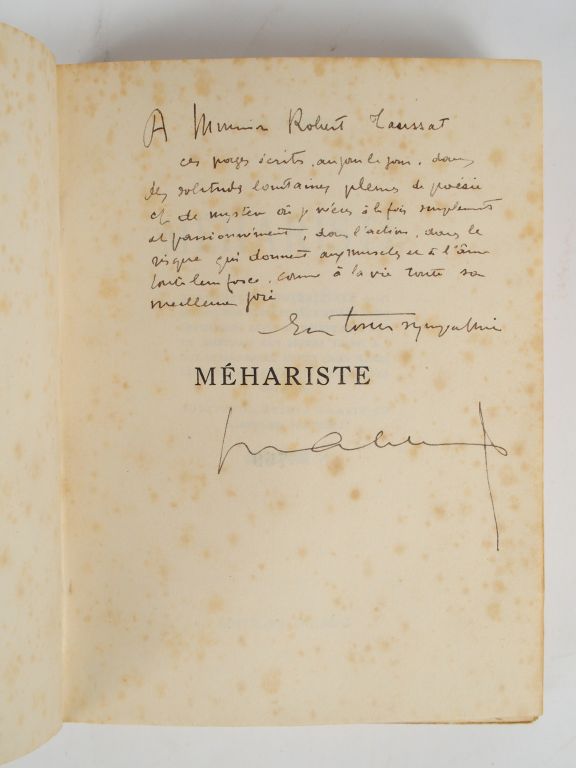 A Monsieur Robert Taussat
ces pages écrites, au jour le jour, dans
des solitudes lointaines pleines de poésie
et de mystère où je vécus à la fois simplement
et passionnément, dans l'action, dans le
risque qui donnent aux muscles et à l'âme
toute leur force, comme à la vie toute sa
meilleure joie
En toute sympathie
MÉHARISTE